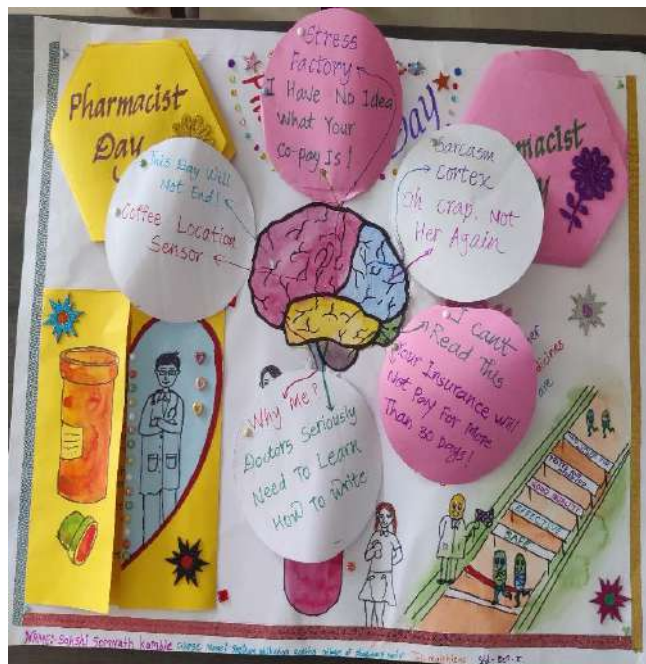 Pharmacist
Day
Stress
Factory
I Have No Idea
What Your
Co-pay Is!
Day
macist
This Day Will
Not End!
Coffee Location
Sensor
Sarcasm
cortex
Oh crap, Not
Her Again
I cant
Read This
Your Insurance Will
Not Pay For More
Than 30 Days!
Why Me?
Doctors Seriously
Need To Learn
How To Write
er
dicines
are
GOOD QUALITY
EFFECTIVE
SAFE
Name: Sakshi Somnath Kamble